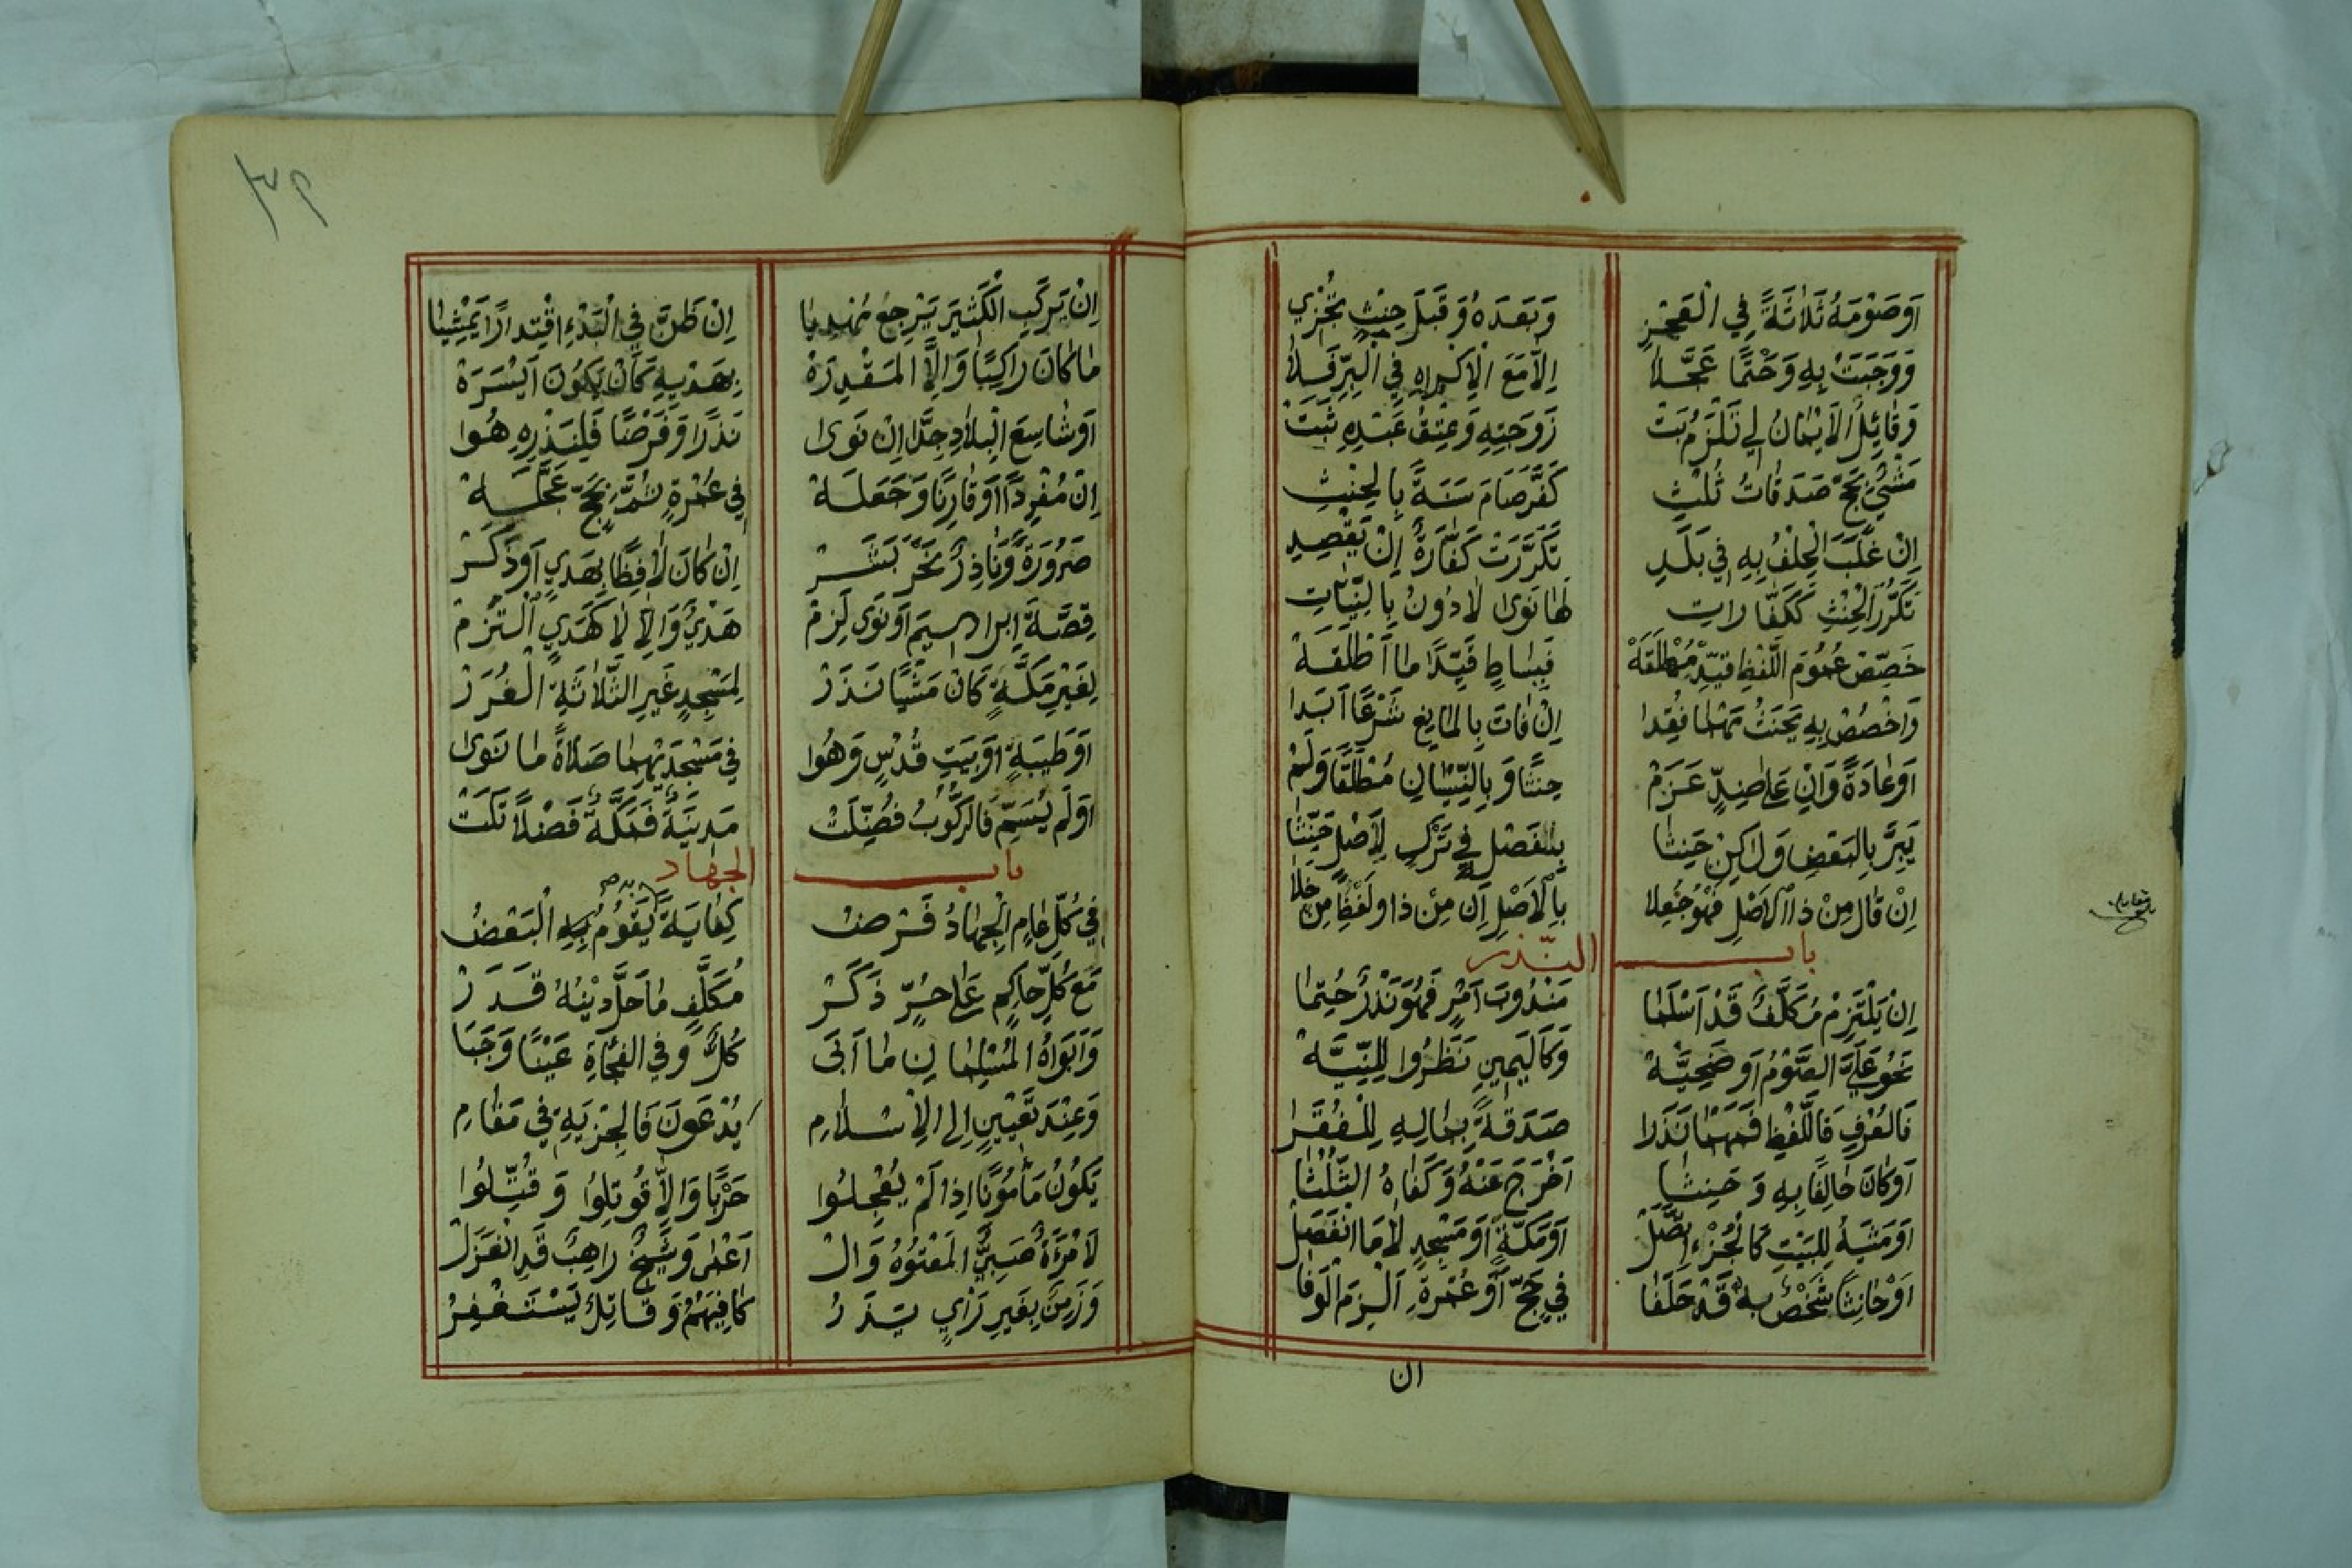 اَوصَوْمَهُ ثَلَاثَةً فِي الْعَجْزِ وَبَعَدَهُ وَقَبْلَ حِنْثٍ يُجْزِي
وَوَجَبَتْ بِهِ وَحَتْمًا عَجَّلَا اِلَّا مَعَ الْاِكْرَاهِ فِي الْبِرِّ فَلَا
وَقَائِلُ الاَيْمَانُ لِي تَلْزَمُ بَتْ زَوجَتِهِ وَعِتْقُ عَبْدِهِ ثَبَتْ
مَشْيٌ بَحَجّ صَدَقَاتُ ثُلْثِ كَفَّرَ صَامَ سَنَةً بِالْحِنْثِ
اِنْ غَلَبَ الْحِلْفُ بِهِ فِي بَلَدِ تَكَرَّرَتْ كَفَّارَةٌ اِنْ يَقْصِدِ
تَكَرُّرَ الْحِنْثِ كَكَفَّارَاتِ لهَا نَوَى لَا دُونُ بِالنِّيَّاتِ
خَصِّصْ عُمُومَ اللَّفْظِ قَيِّدْ مُطْلَقَهْ فَبِسَاطٍ قَيِّدًا مَا اَطْلَقَهْ
وَاخْصُصْ بِهِ يَحْنَثُ مَهْمَا فُقِدَا اِنْ فَاتَ بِالْمَانِعِ شَرْعًا اَبَدَا
اَوعَادَةً وَاِنْ عَلَى ضِدٍّ عَزَمْ حِنْثًا وَبِالنِّسْيَانِ مُطْلَقًا وَلَمْ
يَبَرَّ بِالبَعْضِ وَلَاكِنْ حَنِثَا
اِنْ قَالَ مِنْ ذَا الاَصْلِ فَهْوَ جُعِلَا بِالاَصْلِ اِنْ مِنْ ذَا وَلَفْظًا مِنْ خَلَا
باب النّذر
اِنْ يَلْتَزِمْ مُكَلَّفٌ قَدْ اَسْلَمَا مَنْدُوبَ اَمْرٍ فَهُوَ نَذْرٌ حُتِّمَا
نَحْوُ عَلَيَّ الصَّوْمُ اَو ضَحِيَّهْ وَكَالْيَمِينِ نَظَرُوا لِلنِّيَّهْ
فَالعُرْفِ فَاللَّفْظِ فَمَهْمَا نَذَرَا صَدَقَةً بِمَالِهِ لِلْفُقَرَا
اَوكَانَ حَالِفًا بِهِ وَحَنِثَا اَخْرَجَ عَنْهُ وَكَفَاهُ الثُّلُثَا
اَومَشْيَهُ لِلْبَيْتِ كَالْجُزْءِ اتَّصَلْ اَومَكَّةٍ اَومَسْجِدٍ لَا مَا انْفَصَلْ
اَوْحَانِثًا شَخْصٌ بِهِ قَدْ حَلَفَا فِي حَجّ اَوعُمْرَةِ اَلْزِمَ الْوَفَا
ان
اِنْ يَركَبِ الْكَثِيرَ يَرْجِعْ مُهْدِيَا اِنْ ظَنَّ فِي الْبَدْءِ اقْتِدَارًا يَمْشِيَا
مَا كَانَ رَاكِبًا وَاِلَّا المَقْدِرَهْ بِهَدْيِهِ كَاَنْ يَكُونَ اَيْسَرَهْ
اَوشَاسِعَ الْبِلَادِ جِدًّا اِنْ نَوَى نَذْرًا وَفَرْضًا فَلِنَذْرِهِ هُوا
اِنْ مُفْرِدًا اَوقَارِنًا وَجَعَلَهْ فِي عُمْرَةٍ ثُمَّ بِحَجّ عَجَّلَهْ
صَرُورَةً وَنَاذِرٌ نَحْرَ بَشَرْ اِنْ كَانَ لَافِظًا بِهَدْيٍ اَوذَكَرْ
قِصَّةَ اِبْرَاهِيمَ اَوْنَوَى لَزِمْ هَدْيٌ وَاِلَّا لَا كَهَدْيٍ الْتُزِمْ
لِغَيْرِ مَكَّةٍ كَاَنْ مَشْيًا نَذَرْ لِمَسْجِدٍ غَيْرِ الثَّلَاثَةِ الْغُرَرْ
اَوطَيْبَةٍ اَوبَيْتِ قُدْسٍ وَهُوا فِي مَسْجِدَيْهِمَا صَلَاةً مَا نَوَى
اَولَمْ يُسَمِّ فَالرُّكُوبُ فُضِّلَتْ مَدِينَةٌ فَمَكَّةٌ فَضْلًا تَلَتْ
باب الجهاد
فِي كُلِّ عَامٍ الْجِهَادُ فَرضُ كِفَايَةٌ يَقُومُ بِهِ الْبَعْضُ
مَع كُلِّ حَاكِمٍ عَلَى حُرٍّ ذَكَرْ مُكَلَّفٍ مَا حَلَّ دَيْنُهُ قَدَرْ
وَاَبَوَاهُ الْمُسْلِمَانِ مَا اَبَى كُلٌّ وَفِي الفُجَاةِ عَيْنًا وَجَبَا
وَعِنْدَ تَعْيِينٍ اِلَى الاِسْلَامِ يُدْعَونَ فَالجِزْيَةِ فِي مَقَامِ
يَكُونُ مَامُونًا اِذَا لَمْ يُعْجِلُوا حَرْبًا وَاِلَّا قُوتِلُوا وَقُتِّلُوا
لَا مْرَاَةٌ صَبِيٌّ المَعْتُوهُ وَالْ اَعْمَى وَشَيْخٌ رَاهِبٌ قَدِ انْعَزَلْ
وَزَمِنٌ بِغَيرِ رَايٍ يَنذَرُ كَافِيَهُمْ وَقَاتِلٌ يَسْتَغْفِرُ